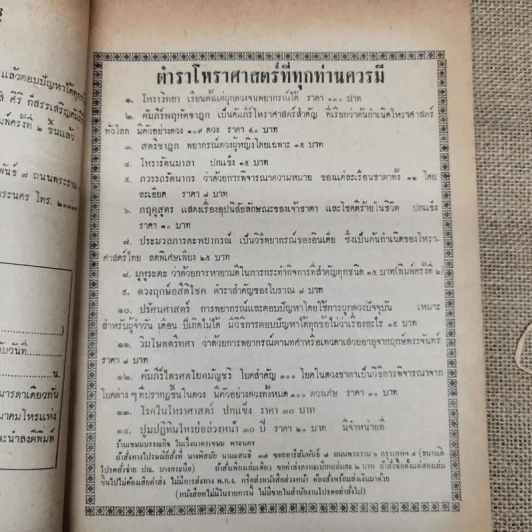 แล้วตอบปัญหาได้ทุก
พิมพ์ครั้งที่ ๒ ขึ้นแล้ว
พระนคร โทร.
ับวันที่
น.
มารดาเดียวกัน
มาคมโหรแห่ง
ะนำส่งตีพิมพ์
ตำราโหราศาสตร์ที่ทุกท่านควรมี
๑. โหราวิทยา เรียนตั้งแต่ผูกดวงจนพยากรณ์ได้ ราคา บาท
๒. คัมภีร์พฤหัตชาฏก เป็นคัมภีร์โหราศาสตร์สำคัญ ที่เรียกว่าต้นกำเนิดโหราศาสตร์
ทั่วโลก มีตัวอย่างดวง ๑๐๙ ดวง ราคา ๕๐ บาท
๓. สตรีชาฏก พยากรณ์ดวงผู้หญิงโดยเฉพาะ ๑๕ บาท
๔. โหรารัตนมาลา ปกแข็ง ๑๕ บาท
๕. ภวรรถรัตนากร ว่าด้วยการพิจารณาความหมาย ของแต่ละเรือนชาตาทั้ง ๑๒ โดย
ละเอียด ราคา ๘ บาท
๖. กฤตสูตร แสดงเรื่องอุปนิสัยลักษณะของเจ้าชาตา และโชคดีร้ายในชีวิต ปกแข็ง
ราคา ๓๐ บาท
๗. ประมวลภารตะพยากรณ์ เป็นวิธีพยากรณ์ของอินเดีย ซึ่งเป็นต้นกำเนิดของโหรา-
ศาสตร์ไทย ลดพิเศษเพียง ๒๕ บาท
๘. มุหูรตะ ว่าด้วยการหายามดีในการกระทำกิจการที่สำคัญทุกชนิด ๑๕ บาท(พิมพ์ครั้งที่ ๒
๙. ดวงฤกษ์อสีติโชค ตำราสำคัญของโบราณ ๘ บาท
๑๐. ปรัศนศาสตร์ การพยากรณ์และตอบปัญหาโดยใช้การผูกดวงปัจจุบัน เหมาะ
สำหรับผู้จำวัน เดือน ปีเกิดไม่ได้ มีวิธีการตอบปัญหาได้ทุกข้อไม่ว่าเรื่องอะไร ๑๕ บาท
๑๑. วิมโษตตรีทศา ว่าด้วยการพยากรณ์ตามทศาหรือเทวดาเสวยอายุจากฤกษ์พระจันทร์
ราคา ๘ บาท
๑๒. คัมภีร์ไตรศตโยคมัญชรี โยคสำคัญ ๓๐๐ โยคในดวงชาตาเป็นวิธีการพิจารณาจาก
โยคต่าง ๆ ที่ปรากฏขึ้นในดวง มีตัวอย่างดวงทั้งหมด ๓๐๐ ดวงเศษ ราคา ๓๐ บาท
๑๓. โรคในโหราศาสตร์ ปกแข็ง ราคา ๓๐ บาท
๑๔. ปูมปฏิทินโหรย่อล่วงหน้า ๓๐ ปี ราคา ๒๐ บาท มีจำหน่ายที่
ร้านเกษมบรรณกิจ ในเวิ้งนาครเขษม พระนคร
ถ้าสั่งทางไปรษณีย์สั่งที่ นางพิสมัย ๗๗ ซอยอารีสัมพันธ์ ๘ ถนนพระราม ๖ กรุงเทพฯ ๔ (ธนาณัติ
โปรดสั่งจ่าย ปณ. บางกระบือ) ถ้าสั่งเพียงเล่มเดียว ขอค่าส่งลงทะเบียนเล่มละ ๒ บาท ถ้าสั่งซื้อตั้งแต่สองเล่ม
ขึ้นไปไม่ต้องเสียค่าส่ง ไม่มีการส่งทาง พ.ก.ง. หรือส่งหนังสือล่วงหน้า ต้องสั่งพร้อมส่งเงินมาด้วย
(หนังสือหาไม่มีในรายการนี้ ไม่มีขายในสำนักงานโปรดอย่าสั่งไป)